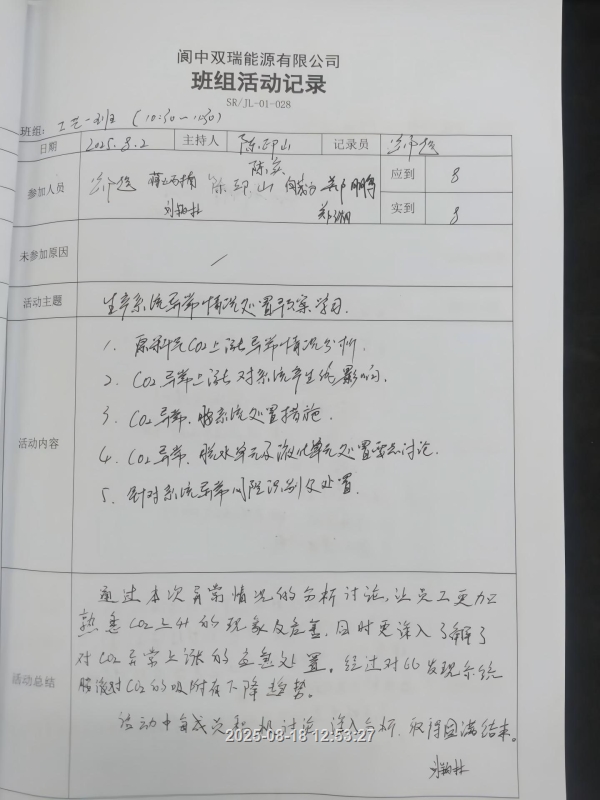 阆中双瑞能源有限公司
班组活动记录
SR/JL-01-028
班组: 工艺一班 (10:30-11:30)
日期 2025.8.2 主持人 陈卬山 记录员
参加人员 陈卬山 陈实 郑鹏
应到 8
实到 8
未参加原因 /
活动主题 生产系统异常情况处置预案学习.
活动内容
1. 原料气CO2上涨异常情况分析.
2. CO2异常上涨对系统产生的影响.
3. CO2异常.脱系统处置措施.
4. CO2异常.脱水单元及液化单元处置要点讨论.
5. 针对系统异常风险识别及处置.
活动总结
通过本次异常情况的分析讨论,让员工更加
熟悉CO2上升的现象及危害,同时更深入了解了
对CO2异常上涨的应急处置。经过对比发现系统
胺液对CO2的吸附有下降趋势。
活动中各成员积极讨论,深入分析.取得圆满结束。
2025-08-18 12:53:27